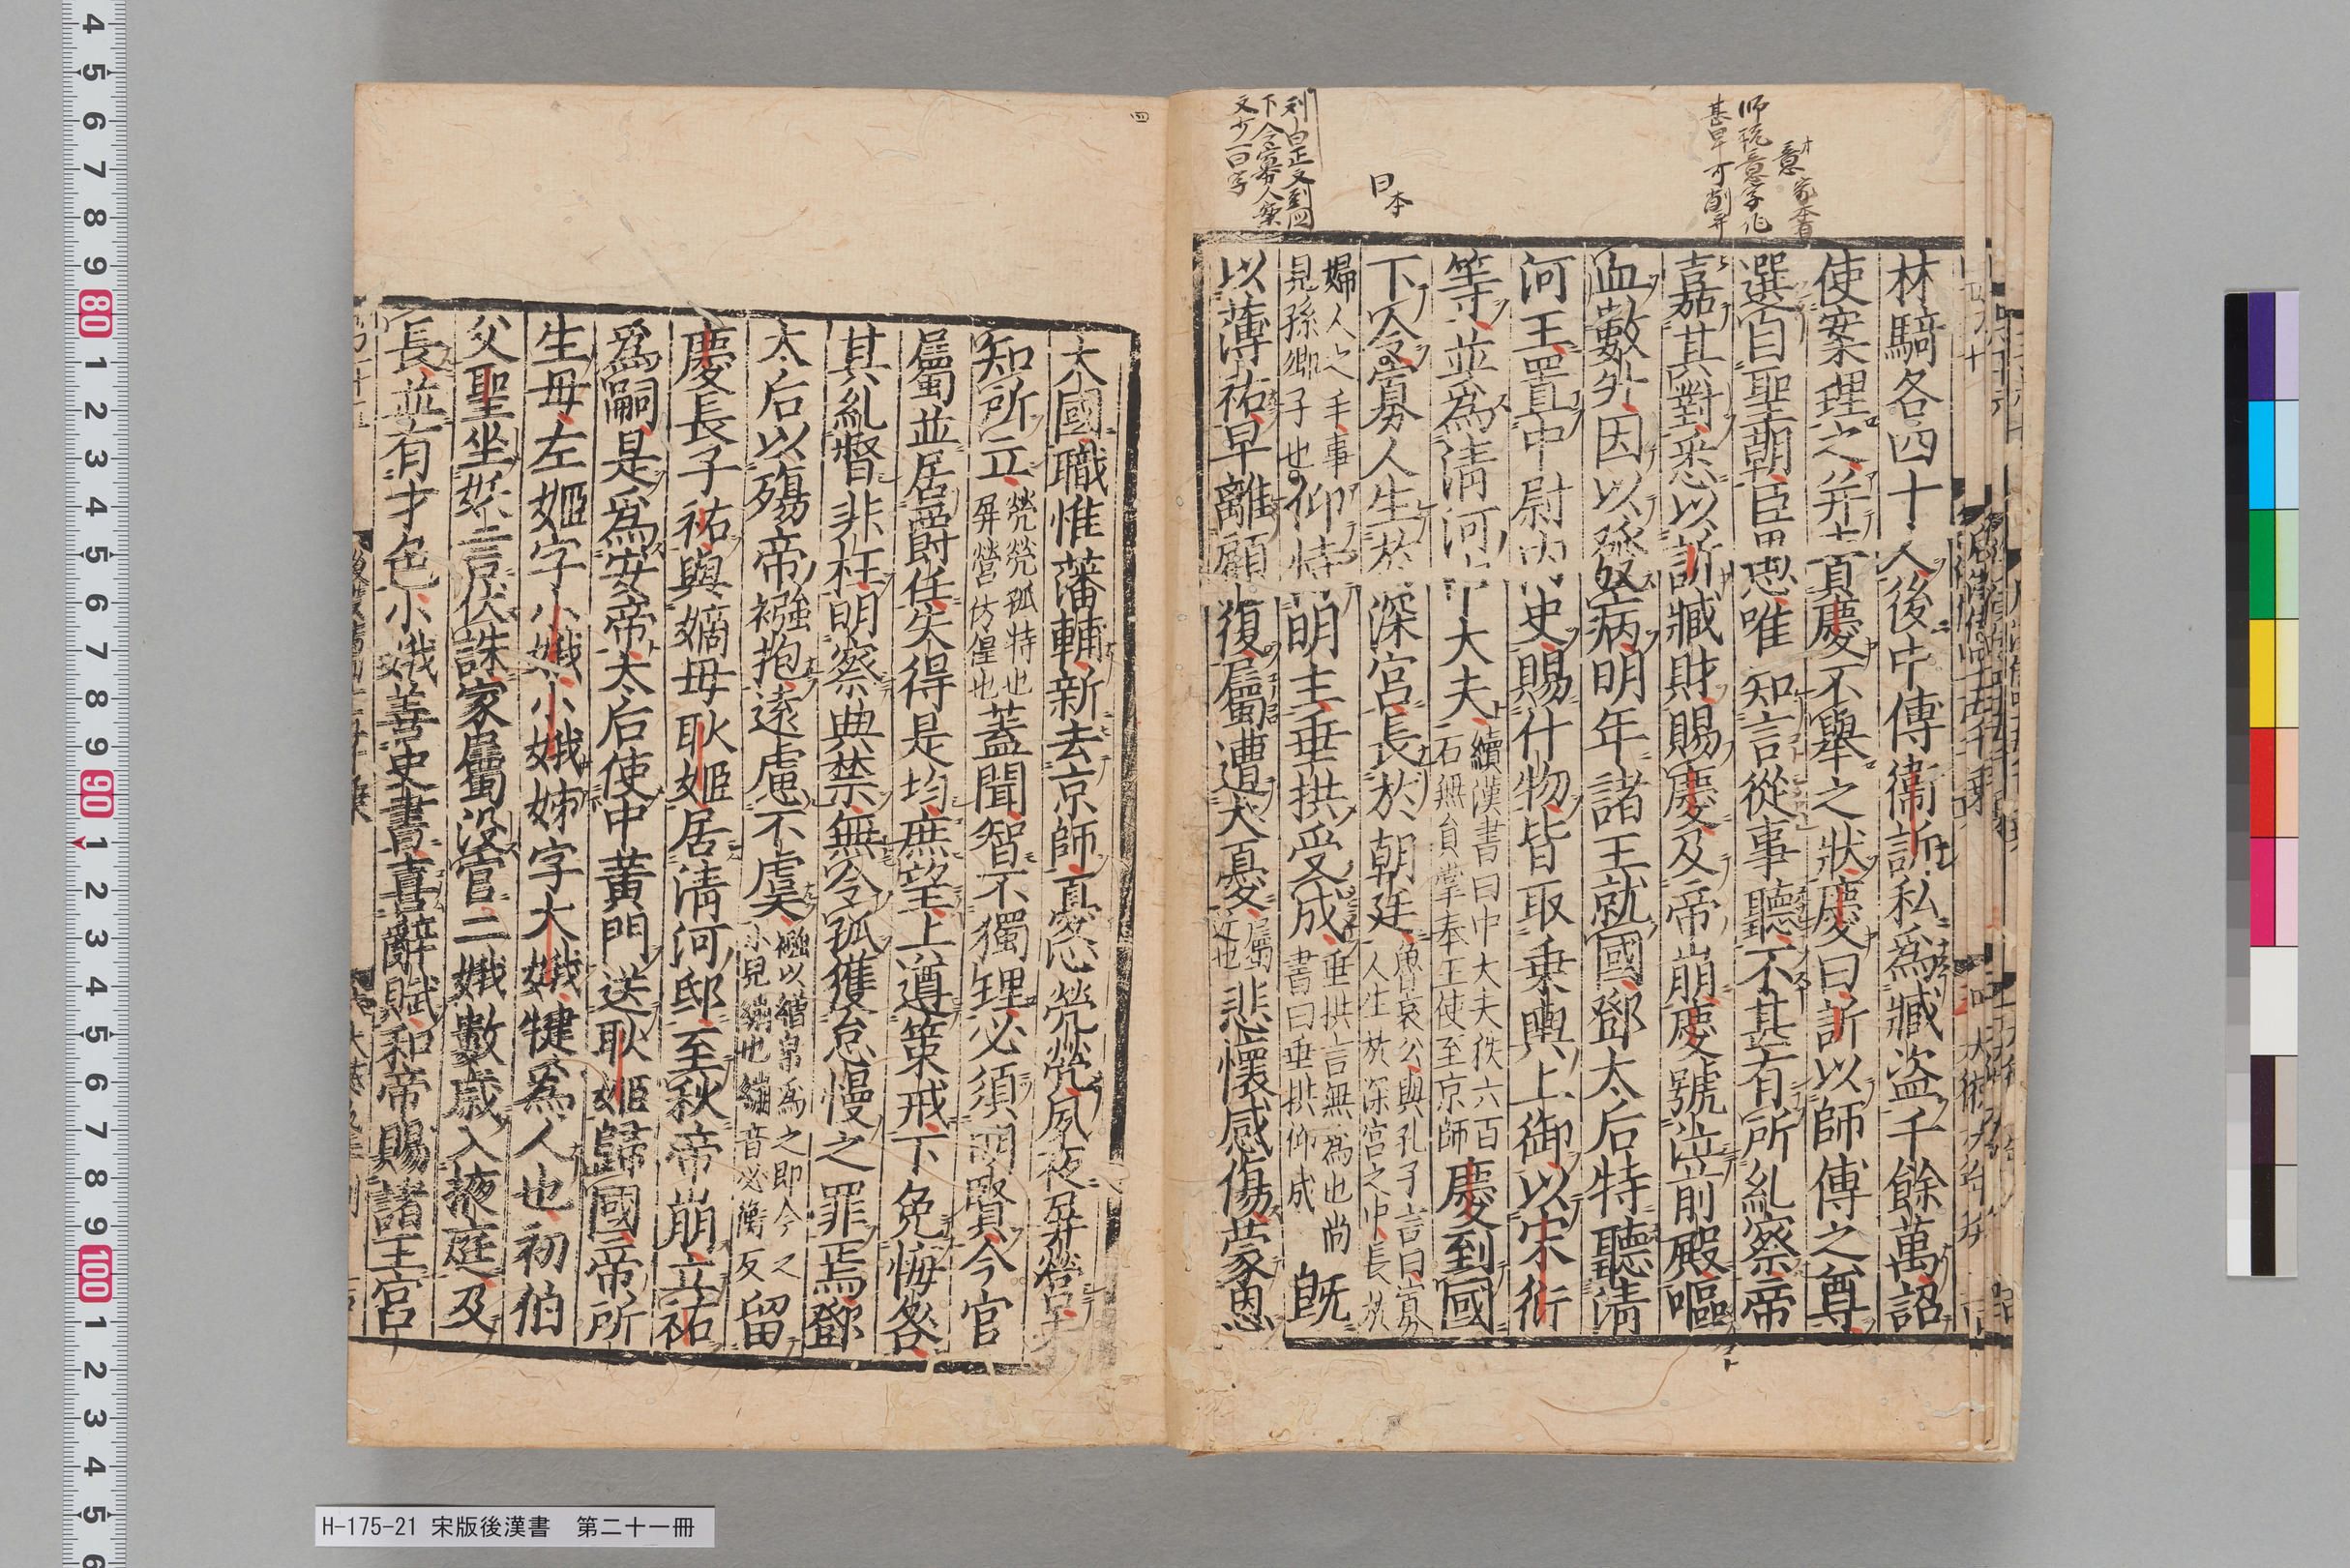 林騎各四十人後中傅衛訢私爲臧盜千餘萬詔
使案理之并責慶不舉之狀慶曰訢以師傅之尊
選自聖朝臣愚唯知言從事聽不甚有所糺察帝
嘉其對悉以訢臧財賜慶及帝崩慶號泣前殿嘔
血數升因以發病明年諸王就國鄧太后特聽清
河王置中尉內史賜什物皆取乗輿上御以宋衍
等並爲清河中大夫續漢書曰中大夫秩六百石無員掌奉王使至京師慶到國
下令寡人生於深宮長於朝廷魯哀公與孔子言曰寡人生於深宮之中長於
婦人之手事見孫卿子也仰恃明主垂拱受成垂拱言無爲也尚書曰垂拱仰成旣
以薄祐早離顧復屬遭大憂屬近也悲懷感傷蒙恩
大國職惟藩輔新去京師憂心煢煢夙夜屏營未
知所立煢煢孤特也屏營仿偟也蓋聞智不獨理必須明賢今官
屬並居爵任失得是均庶望上遵策戒下免悔咎
其糺督非枉明察典禁無令孤獲怠慢之罪焉鄧
太后以殤帝襁抱遠慮不虞襁以繒帛爲之即今之小兒繃也繃音必衡反留
慶長子祐與嫡母耿姬居清河邸至秋帝崩立祐
爲嗣是爲安帝太后使中黃門送耿姬歸國帝所
生母左姬字小娥小娥姊字大娥犍爲人也初伯
父聖坐妖言伏誅家屬没官二娥數歲入掖庭及
長並有才色小娥善史書喜辭賦和帝賜諸王宮
日本
H-175-21 宋版後漢書 第二十一冊